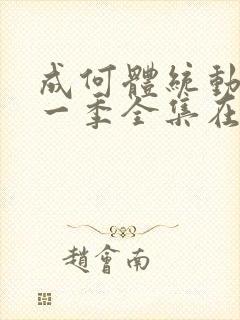 成何體統動
一季全集在
趙會南